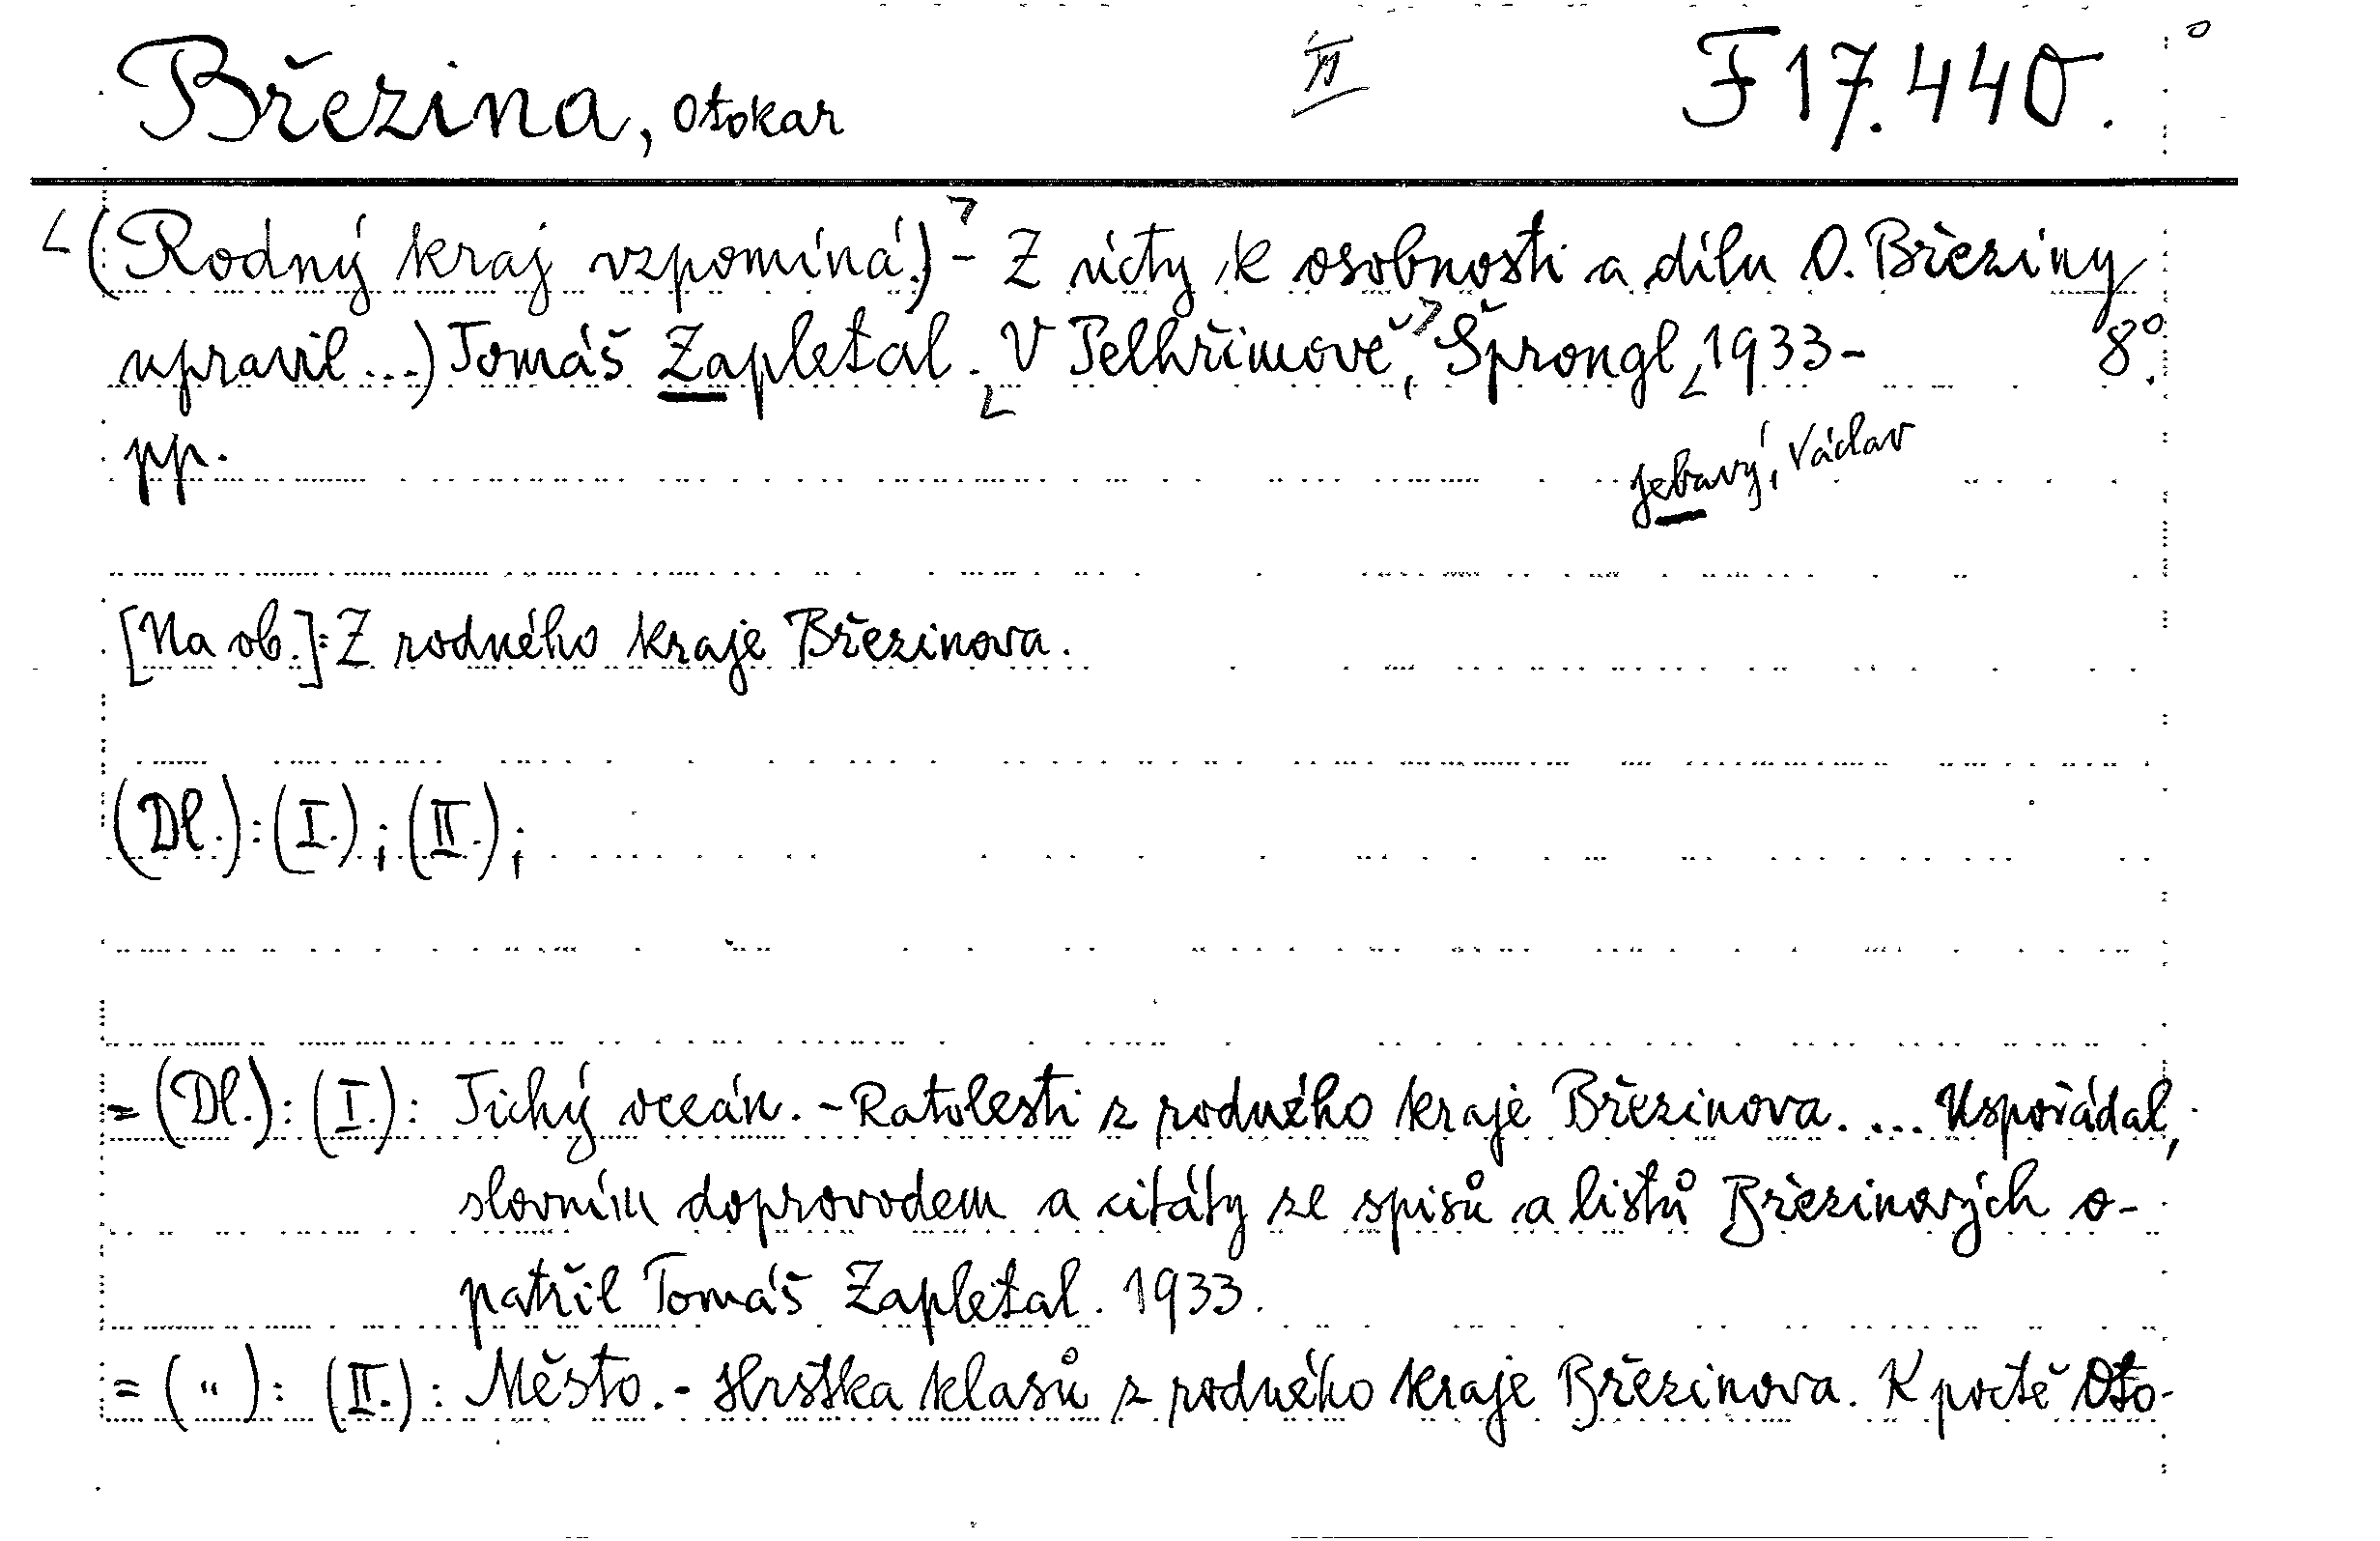 Březina, Otokar II F 17.440.
(Rodný kraj vzpomíná.) - Z úcty k osobnosti a dílu O. Březiny
upravil ...) Tomáš Zapletal. V Pelhřimově, Šprongl, 1933- 8°.
pp.
Jebavý, Václav
[Na ob.]: Z rodného kraje Březinova.
(Dl.): (I.); (II.);
= (Dl.): (I.): Tichý oceán. - Ratolesti z rodného kraje Březinova. ... Uspořádal,
slovním doprovodem a citáty ze spisů a listů Březinových o-
patřil Tomáš Zapletal. 1933.
= ("): (II.): Město. - Hrstka klasů z rodného kraje Březinova. K poctě Oto-